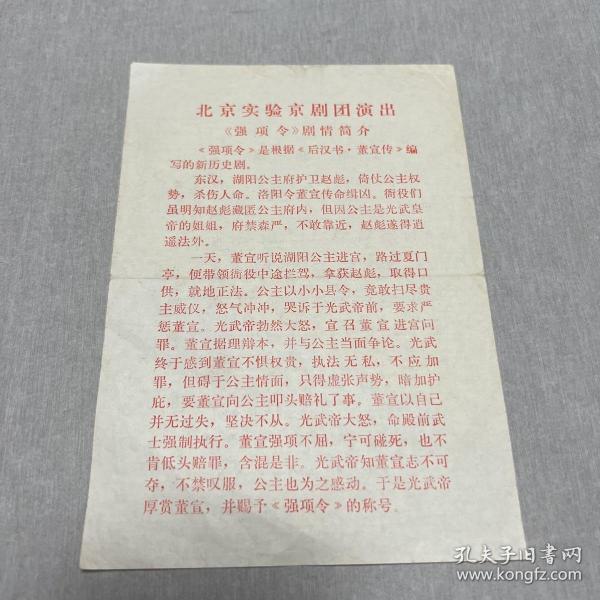 北京实验京剧团演出
《强项令》剧情简介
《强项令》是根据《后汉书·董宣传》编
写的新历史剧。
东汉，湖阳公主府护卫赵彪，倚仗公主权
势，杀伤人命。洛阳令董宣传命缉凶。衙役们
虽明知赵彪藏匿公主府内，但因公主是光武皇
帝的姐姐，府禁森严，不敢靠近，赵彪遂得逍
遥法外。
一天，董宣听说湖阳公主进宫，路过夏门
亭，便带领衙役中途拦驾，拿获赵彪，取得口
供，就地正法。公主以小小县令，竟敢扫尽贵
主威仪，怒气冲冲，哭诉于光武帝前，要求严
惩董宣。光武帝勃然大怒，宣召董宣进宫问
罪。董宣据理辩本，并与公主当面争论。光武
终于感到董宣不惧权贵，执法无私，不应加
罪，但碍于公主情面，只得虚张声势，暗加护
庇，要董宣向公主叩头赔礼了事。董宣以自己
并无过失，坚决不从。光武帝大怒，命殿前武
士强制执行。董宣强项不屈，宁可碰死，也不
肯低头赔罪，含混是非。光武帝知董宣志不可
夺，不禁叹服，公主也为之感动。于是光武帝
厚赏董宣，并赐予《强项令》的称号。
孔夫子旧书网
www.kongfz.com